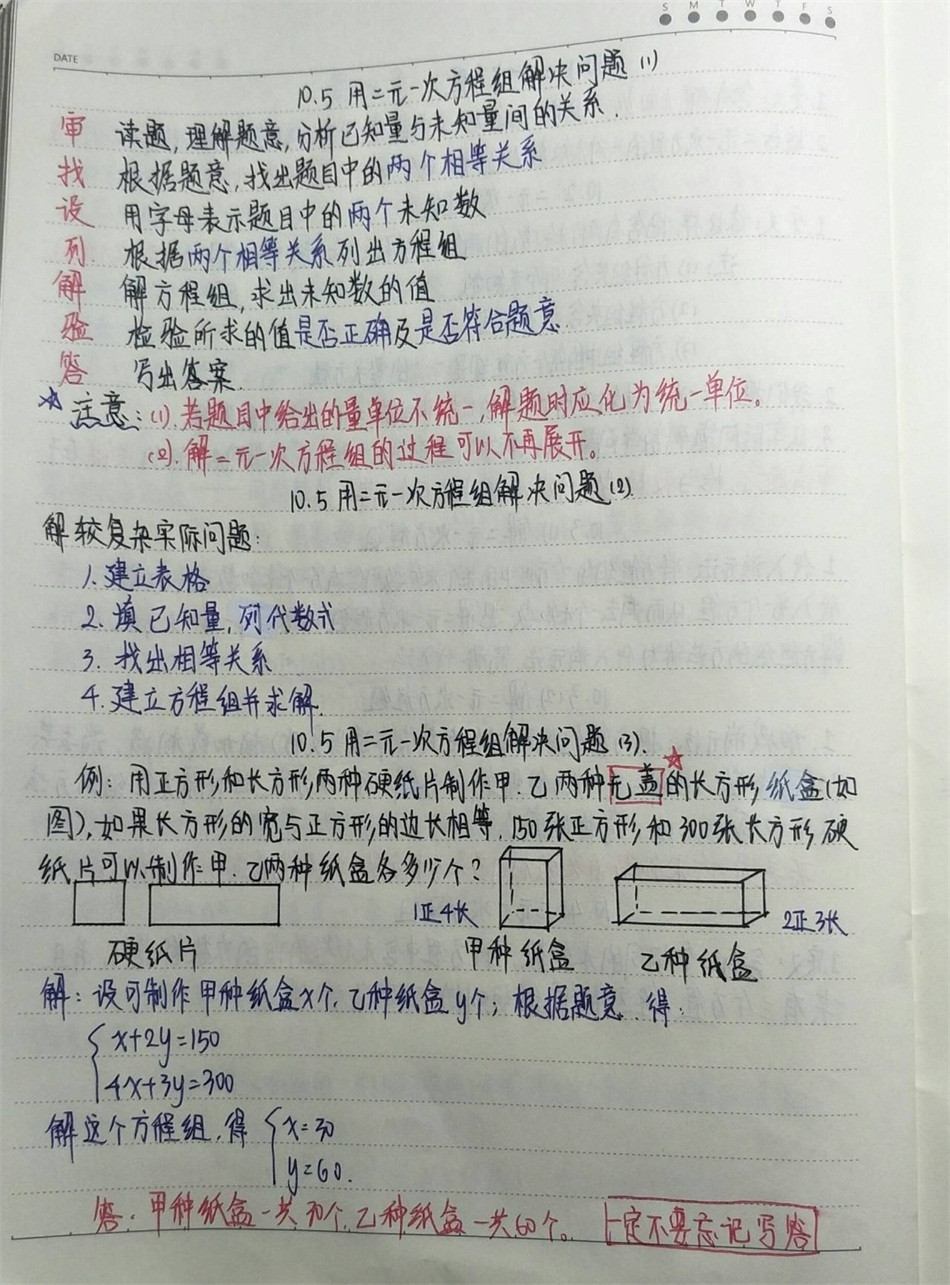 S M T W T F S
DATE
10.5 用二元一次方程组解决问题(1)
审 读题,理解题意,分析已知量与未知量间的关系.
找 根据题意,找出题目中的两个相等关系
设 用字母表示题目中的两个未知数
列 根据两个相等关系列出方程组
解 解方程组,求出未知数的值
验 检验所求的值是否正确及是否符合题意.
答 写出答案.
☆注意:(1).若题目中给出的量单位不统一,解题时应化为统一单位。
(2).解二元一次方程组的过程可以不再展开。
10.5 用二元一次方程组解决问题(2).
解较复杂实际问题:
1.建立表格
2.填已知量,列代数式
3.找出相等关系
4.建立方程组并求解.
10.5 用二元一次方程组解决问题(3).
例:用正方形和长方形两种硬纸片制作甲.乙两种无盖的长方形纸盒(如
图),如果长方形的宽与正方形的边长相等,150张正方形和300张长方形硬
纸片可以制作甲.乙两种纸盒各多少个?
1正4长 2正3长
硬纸片 甲种纸盒 乙种纸盒
解:设可制作甲种纸盒x个,乙种纸盒y个;根据题意.得:
x+2y=150
4x+3y=300
解这个方程组,得 x=30
y=60.
答:甲种纸盒一共30个,乙种纸盒一共60个。 一定不要忘记写答